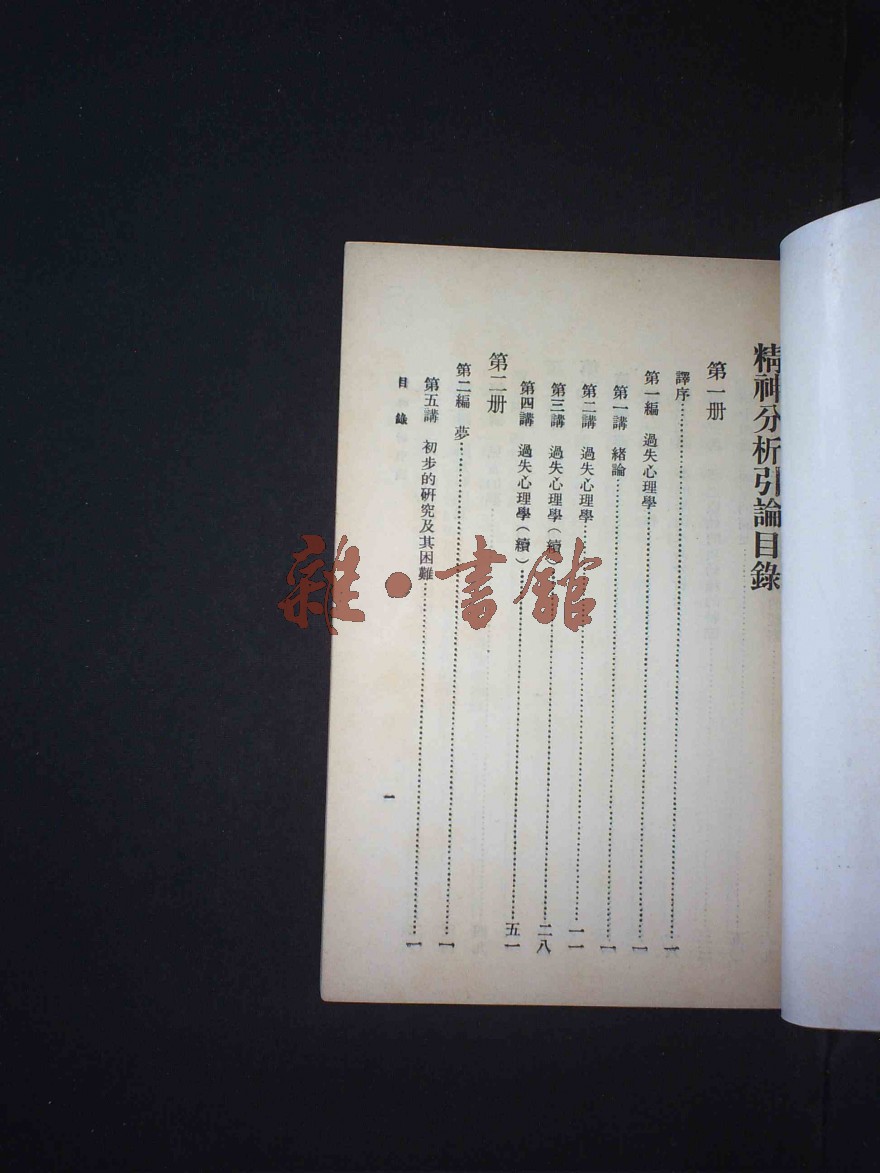 精神分析引論目錄
第一册
譯序……………………一
第一編 過失心理學……………………一
第一講 緒論……………………一
第二講 過失心理學……………………一一
第三講 過失心理學(續)……………………二八
第四講 過失心理學(續)……………………五一
第二册
第二編 夢……………………一
第五講 初步的硏究及其困難……………………一
目錄
一
雜·書館